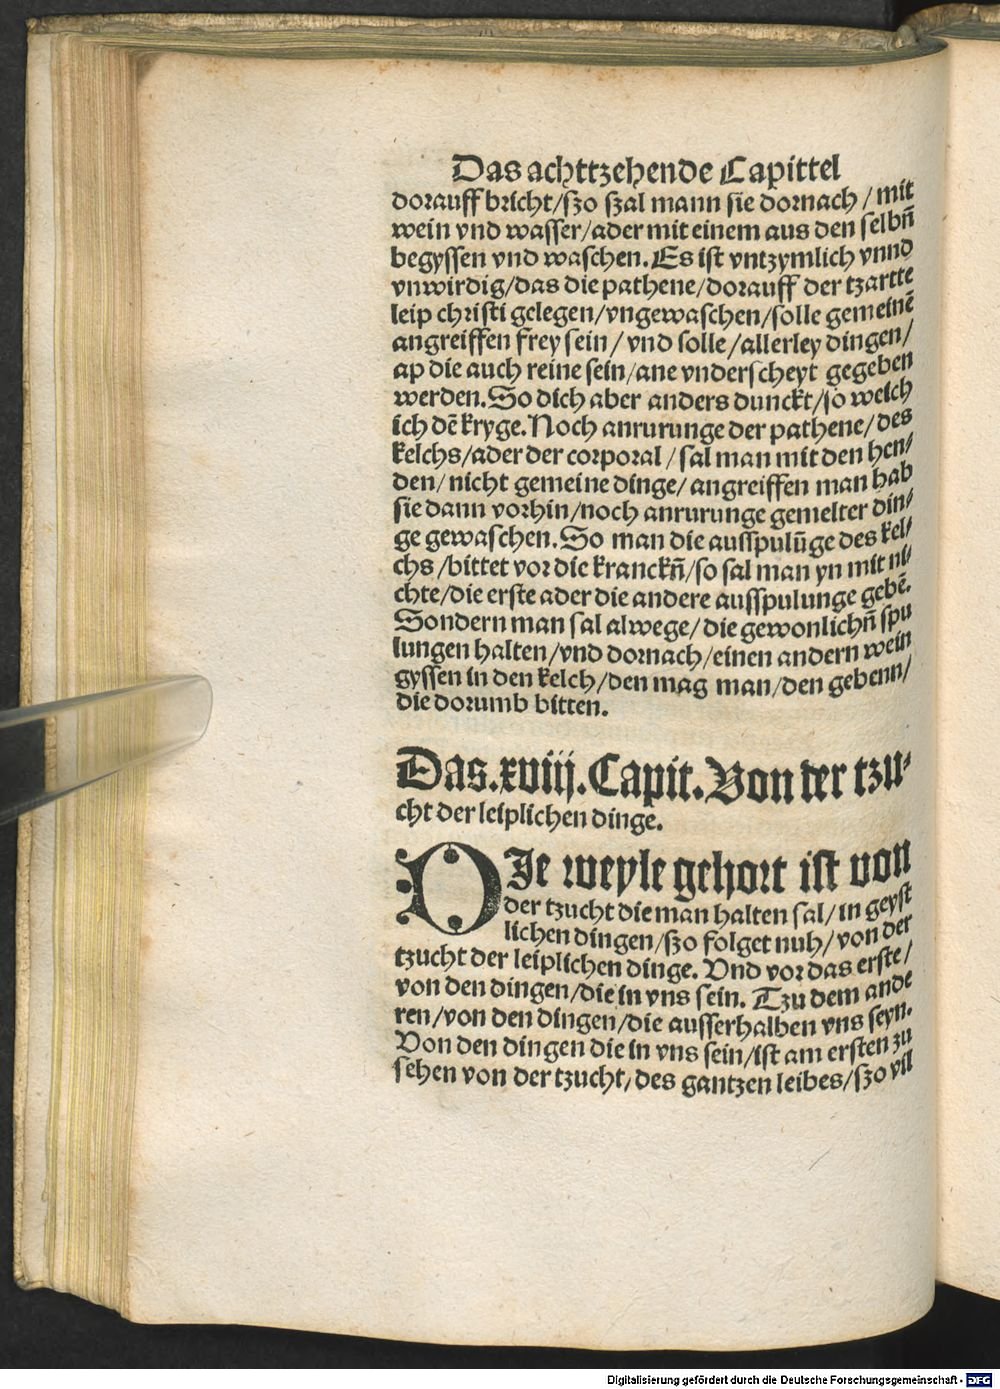 Das achttzehende Capittel
dorauff bricht/ szo szal mann sie dornach / mit
wein vnd wasser/ ader mit einem aus den selbñ
begyssen vnd waschen. Es ist vntzymlich vnnd
vnwirdig/ das die pathene/ dorauff der tzartte
leip christi gelegen/ vngewaschen/ solle gemeinē
angreiffen frey sein/ vnd solle/ allerley dingen/
ap die auch reine sein/ ane vnderscheyt gegeben
werden. So dich aber anders dunckt/ so weich
ich dē kryge. Noch anrurunge der pathene/ des
kelchs/ ader der corporal/ sal man mit den hen/
den/ nicht gemeine dinge/ angreiffen man hab
sie dann vorhin/ noch anrurunge gemelter din/
ge gewaschen. So man die ausspulūge des kel/
chs/ bittet vor die kranckñ/ so sal man yn mit ni/
chte/ die erste ader die andere ausspulunge gebē.
Sondern man sal alwege/ die gewonlichñ spu
lungen halten/ vnd dornach/ einen andern wein
gyssen in den kelch/ den mag man/ den gebenn/
die dorumb bitten.
Das. xviij. Capit. Von der tzu⸗
cht der leiplichen dinge.
DIe weyle gehort ist von
der tzucht die man halten sal/ in geyst
lichen dingen/ szo folget nuh/ von der
tzucht der leiplichen dinge. Vnd vor das erste/
von den dingen/ die in vns sein. Tzu dem ande
ren/ von den dingen/ die ausserhalben vns seyn.
Von den dingen die in vns sein/ ist am ersten zu
sehen von der tzucht/ des gantzen leibes/ szo vil
Digitalisierung gefördert durch die Deutsche Forschungsgemeinschaft - DFG